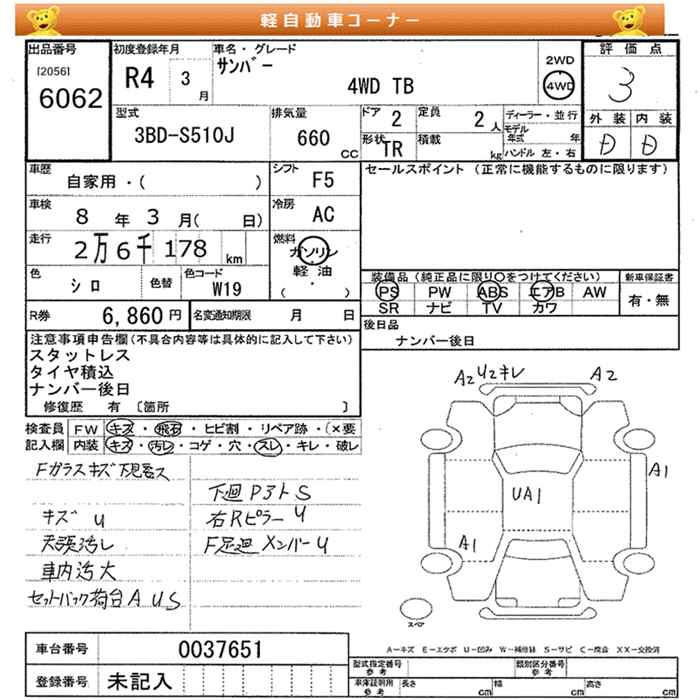 軽自動車コーナー
出品番号
[2056]
6062
初度登録年月
R4 3 月
車名・グレード
サンバー
4WD TB
2WD
4WD
評価点
3
外装 内装
D D
型式
3BD-S510J
排気量
660 CC
ドア
2
定員
2 人
形状
TR
積載
kg
ディーラー・並行
モデル年式 年
ハンドル 左・右
車歴
自家用・( )
シフト
F5
セールスポイント (正常に機能するものに限ります)
車検
8 年 3 月( 日)
冷房
AC
走行
2万6千178 km
燃料
ガソリン
軽・油
( ・ )
色
シロ
色替
色コード
W19
装備品 (純正品に限り○をつけてください)
PS PW ABS エアB AW
SR ナビ TV カワ
新車保証書
有・無
R券 6,860 円
名変通知期限 月 日
後日品
ナンバー後日
注意事項申告欄 (不具合内容等は具体的に記入して下さい)
スタットレス
タイヤ積込
ナンバー後日
修復歴 有 〔箇所 〕
検査員 FW キズ・飛石・ヒビ割・リペア跡・(×要
記入欄 内装 キズ・汚レ・コゲ・穴・スレ・キレ・破レ
Fガラスキズ
キズ U
天張汚レ
車内汚大
セットバック荷台 A U S
下廻 P3ト S
右Rピラー U
F足廻 メンバー U
A2 U2キレ A2
A1
UA1
A1
スペア
A-キズ E-エクボ U-凹み W-補修跡 S-サビ C-腐食 XX-交換済
車台番号 0037651
登録番号 未記入
型式指定番号
参考
類別区分番号
参考
車庫証明用
参考
長さ cm 幅 cm 高さ cm